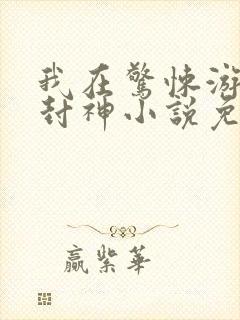 我在驚悚游
封神小說免
贏紫華